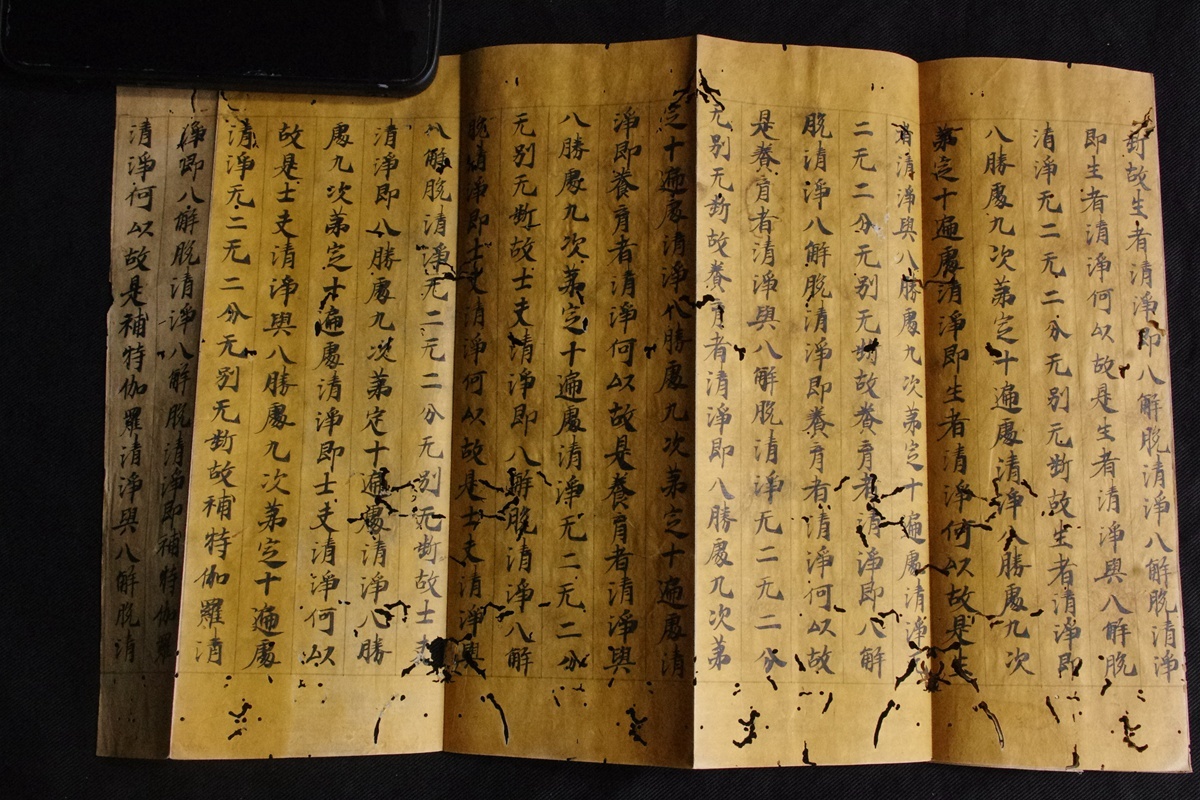 斷故生者清淨即八解脫清淨八解脫清淨
即生者清淨何以故是生者清淨與八解脫
清淨无二无二分无別无斷故生者清淨即
八勝處九次第定十遍處清淨八勝處九次
第定十遍處清淨即生者清淨何以故是生
者清淨與八勝處九次第定十遍處清淨
二无二分无別无斷故養育者清淨即八解
脫清淨八解脫清淨即養育者清淨何以故
是養育者清淨與八解脫清淨无二无二分
无別无斷故養育者清淨即八勝處九次第
定十遍處清淨八勝處九次第定十遍處清
淨即養育者清淨何以故是養育者清淨與
八勝處九次第定十遍處清淨无二无二分
无別无斷故士夫清淨即八解脫清淨八解
脫清淨即士夫清淨何以故是士夫清淨與
八解脫清淨无二无二分无別无斷故士夫
清淨即八勝處九次第定十遍處清淨八勝
處九次第定十遍處清淨即士夫清淨何以
故是士夫清淨與八勝處九次第定十遍處
清淨无二无二分无別无斷故補特伽羅清
淨即八解脫清淨八解脫清淨即補特伽羅
清淨何以故是補特伽羅清淨與八解脫清